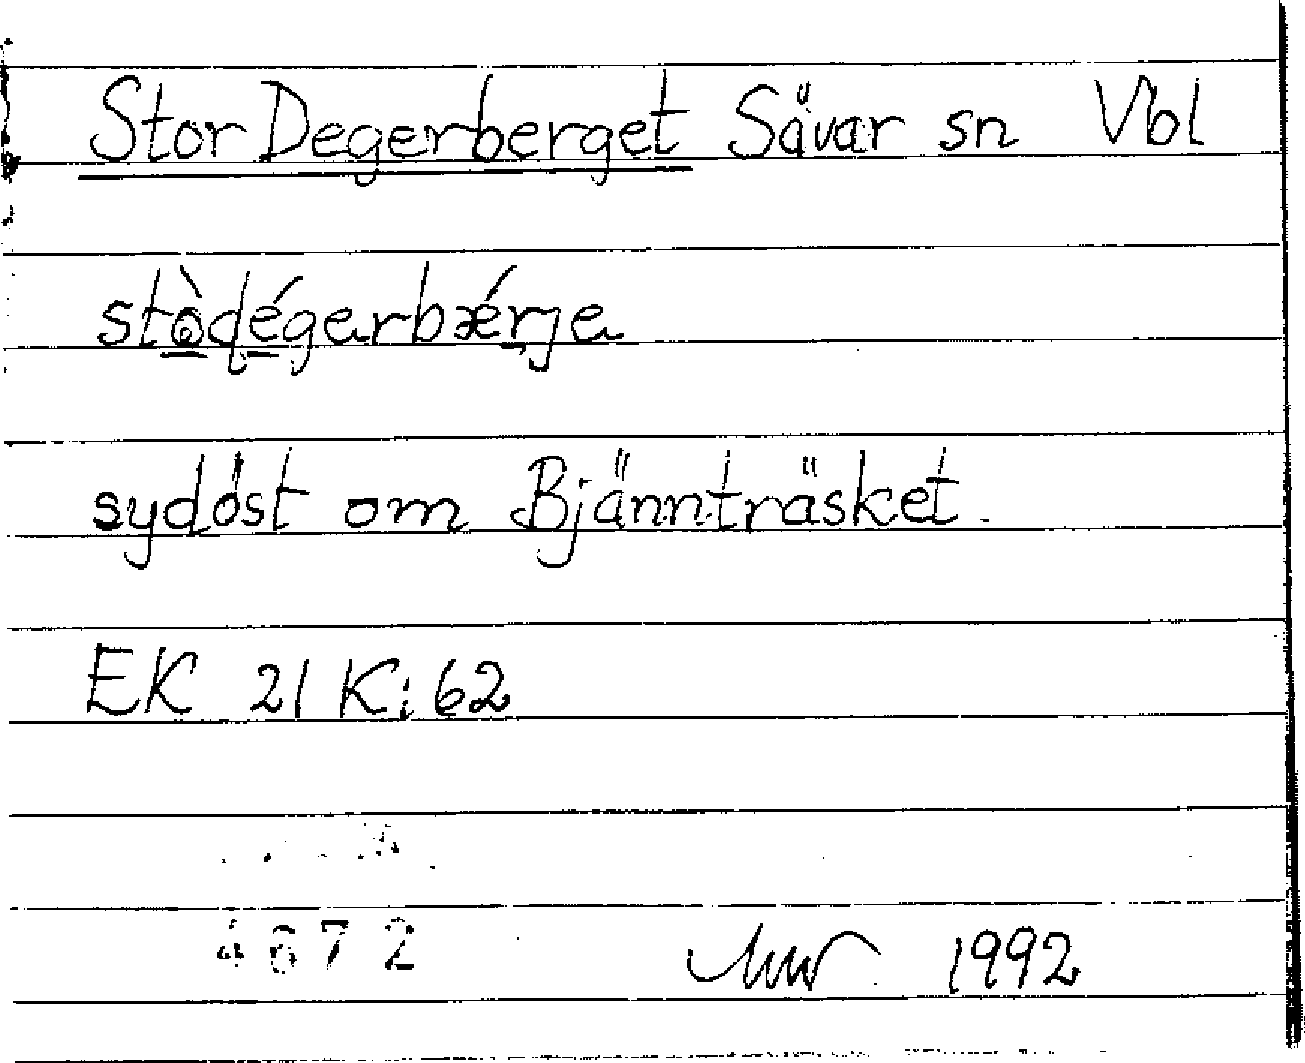 Stor Degerberget Sävar sn Vbl
stòdégarbǽrja
sydöst om Bjännträsket.
EK 21 K: 62
4672 1992